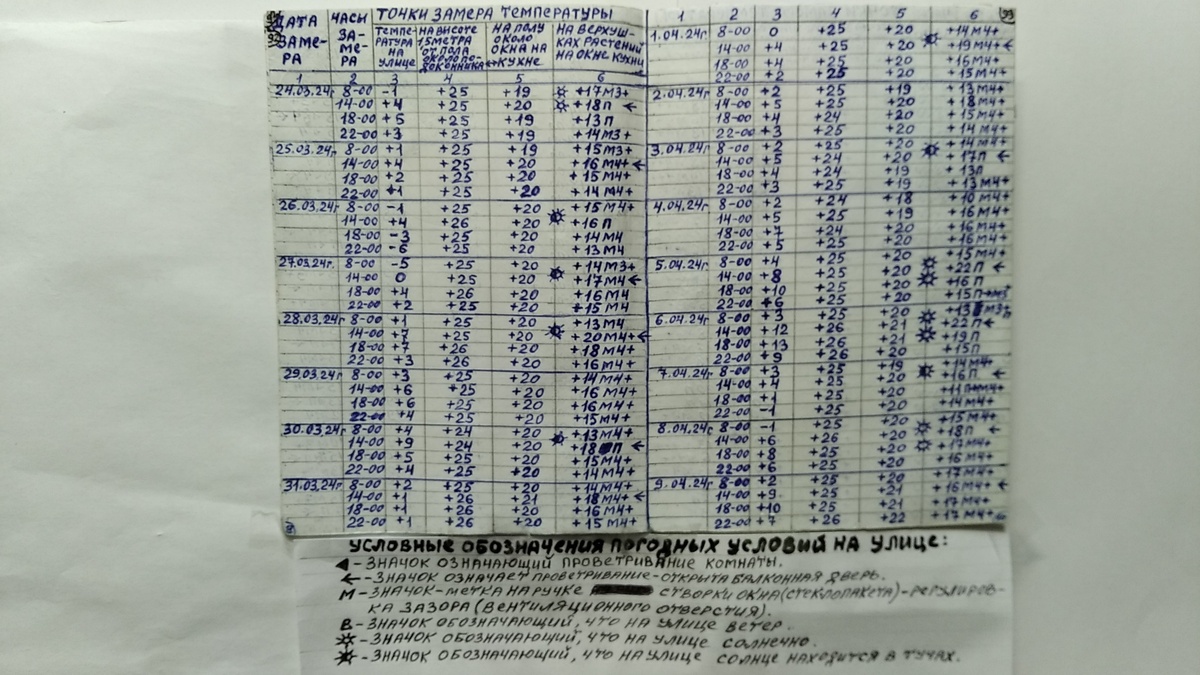 ДАТА ЗАМЕ- РА ЧАСЫ ЗА- МЕ- РА ТОЧКИ ЗАМЕРА ТЕМПЕРАТУРЫ
ТЕМПЕ- РАТУРА НА УЛИЦЕ НА ВЫСОТЕ 1,5 МЕТРА ОТ ПОЛА ОКОЛО ПО- ДОКОННИКА НА ПОЛУ ОКОЛО ОКНА НА КУХНЕ НА ВЕРХУШ- КАХ РАСТЕНИЙ НА ОКНЕ КУХНИ
1 2 3 4 5 6
24.03.24г 8-00 -1 +25 +19 +17 М3+
14-00 +4 +25 +20 +18 П ←
18-00 +5 +25 +19 +13 П
22-00 +3 +25 +19 +14 М3+
25.03.24г 8-00 +1 +25 +19 +15 М3+
14-00 +4 +25 +20 +16 М4+ ←
18-00 +2 +25 +20 +15 М4+
22-00 +1 +25 +20 +14 М4+
26.03.24г 8-00 -1 +25 +20 +15 М4+
14-00 +4 +26 +20 +16 П
18-00 -3 +25 +20 +14 М4
22-00 -6 +25 +20 +13 М4
27.03.24г 8-00 -5 +25 +20 +14 М3+
14-00 0 +25 +20 +17 М4 ←
18-00 +4 +26 +20 +16 М4
22-00 +2 +25 +20 +15 М4
28.03.24г 8-00 +1 +25 +20 +13 М4
14-00 +7 +25 +20 +20 М4+ ←
18-00 +7 +26 +20 +18 М4+
22-00 +3 +26 +20 +16 М4+
29.03.24г 8-00 +3 +25 +20 +14 М4+
14-00 +6 +25 +20 +16 М4+
18-00 +6 +25 +20 +16 М4+
22-00 +4 +25 +20 +15 М4+
30.03.24г 8-00 +4 +24 +20 +13 М4+
14-00 +9 +24 +20 +18 П ←
18-00 +5 +25 +20 +15 М4+
22-00 +4 +25 +20 +14 М4+
31.03.24г 8-00 +2 +25 +20 +14 М4+
14-00 +1 +26 +21 +18 М4+ ←
18-00 +1 +26 +20 +16 М4+
22-00 +1 +26 +20 +15 М4+
1 2 3 4 5 6 93
1.04.24г 8-00 0 +25 +20 +14 М4+
14-00 +4 +25 +20 +19 М4+ ←
18-00 +4 +25 +20 +16 М4+
22-00 +2 +25 +20 +15 М4+
2.04.24г 8-00 +2 +25 +19 +13 М4+
14-00 +5 +25 +20 +18 М4+
18-00 +4 +24 +20 +15 М4+
22-00 +3 +25 +20 +14 М4+
3.04.24г 8-00 +2 +25 +20 +14 М4+
14-00 +5 +24 +20 +17 П ←
18-00 +4 +24 +19 +13 П
22-00 +3 +25 +19 +13 М4+
4.04.24г 8-00 +2 +24 +18 +10 М4+
14-00 +5 +25 +19 +16 М4+
18-00 +7 +24 +20 +16 М4+
22-00 +5 +25 +20 +16 М4+
5.04.24г 8-00 +4 +25 +20 +15 М4+
14-00 +8 +25 +20 +22 П ←
18-00 +10 +25 +20 +16 П
22-00 +6 +25 +20 +15 П
6.04.24г 8-00 +3 +25 +20 +13 М3+
14-00 +12 +26 +21 +22 П ←
18-00 +13 +26 +21 +19 П
22-00 +9 +26 +20 +15 П
7.04.24г 8-00 +3 +25 +19 +14 М4+
14-00 +4 +25 +20 +16 П ←
18-00 +1 +25 +20
22-00 -1 +25 +20 +14 М4+
8.04.24г 8-00 -1 +25 +20 +15 М4+
14-00 +6 +26 +20 +18 П ←
18-00 +8 +25 +20 +17 М4+
22-00 +6 +25 +20 +16 М4+
9.04.24г 8-00 +2 +25 +20 +17 М4+
14-00 +9 +25 +21 +16 М4+ ←
18-00 +10 +25 +21 +17 М4+
22-00 +7 +26 +22 +17 М4+
УСЛОВНЫЕ ОБОЗНАЧЕНИЯ ПОГОДНЫХ УСЛОВИЙ НА УЛИЦЕ:
◄ - ЗНАЧОК ОЗНАЧАЮЩИЙ ПРОВЕТРИВАНИЕ КОМНАТЫ.
← - ЗНАЧОК ОЗНАЧАЕТ ПРОВЕТРИВАНИЕ - ОТКРЫТА БАЛКОННАЯ ДВЕРЬ.
М - ЗНАЧОК - МЕТКА НА РУЧКЕ СТВОРКИ ОКНА (СТЕКЛОПАКЕТА) - РЕГУЛИРОВ-
КА ЗАЗОРА (ВЕНТИЛЯЦИОННОГО ОТВЕРСТИЯ).
В - ЗНАЧОК ОБОЗНАЧАЮЩИЙ, ЧТО НА УЛИЦЕ ВЕТЕР.
☼ - ЗНАЧОК ОБОЗНАЧАЮЩИЙ, ЧТО НА УЛИЦЕ СОЛНЕЧНО.
☀ - ЗНАЧОК ОБОЗНАЧАЮЩИЙ, ЧТО НА УЛИЦЕ СОЛНЦЕ НАХОДИТСЯ В ТУЧАХ.